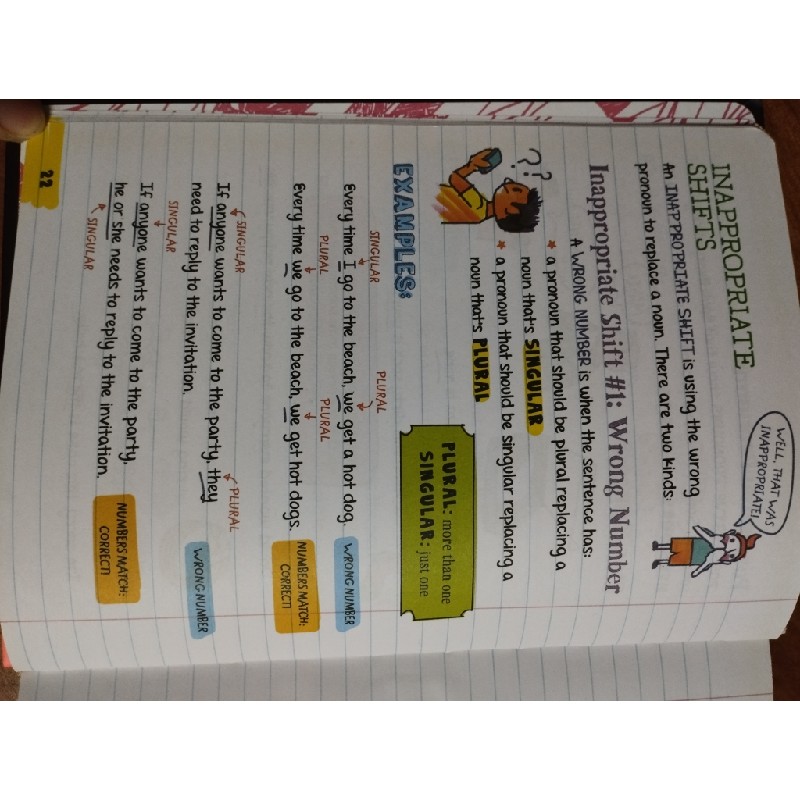 INAPPROPRIATE
SHIFTS
WELL, THAT WAS
INAPPROPRIATE!
An INAPPROPRIATE SHIFT is using the wrong
pronoun to replace a noun. There are two kinds:
Inappropriate Shift #1: Wrong Number
A WRONG NUMBER is when the sentence has:
* a pronoun that should be plural replacing a
noun that's SINGULAR
* a pronoun that should be singular replacing a
noun that's PLURAL
? ?
PLURAL: more than one
SINGULAR: just one
EXAMPLES:
SINGULAR PLURAL
Every time I go to the beach, we get a hot dog. WRONG NUMBER
PLURAL PLURAL
Every time we go to the beach, we get hot dogs. NUMBERS MATCH:
CORRECT!
SINGULAR PLURAL
If anyone wants to come to the party, they
need to reply to the invitation. WRONG NUMBER
SINGULAR
If anyone wants to come to the party,
he or she needs to reply to the invitation. NUMBERS MATCH:
CORRECT!
SINGULAR
22